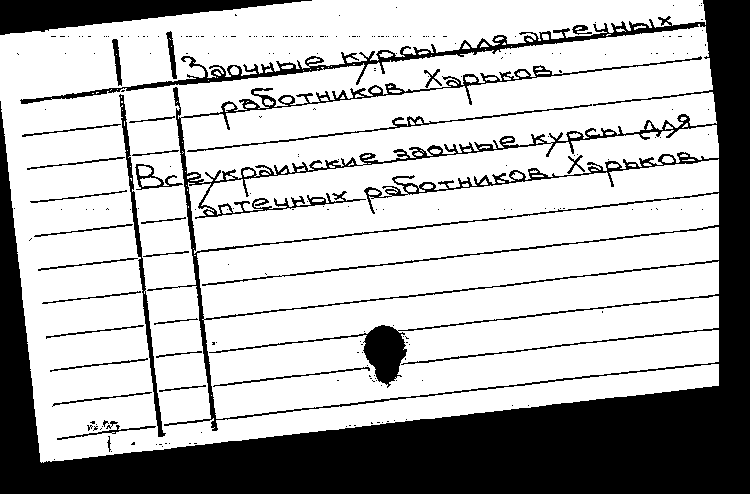 Заочные курсы для аптечных
работников. Харьков.
см
Всеукраинские заочные курсы для
аптечных работников. Харьков.